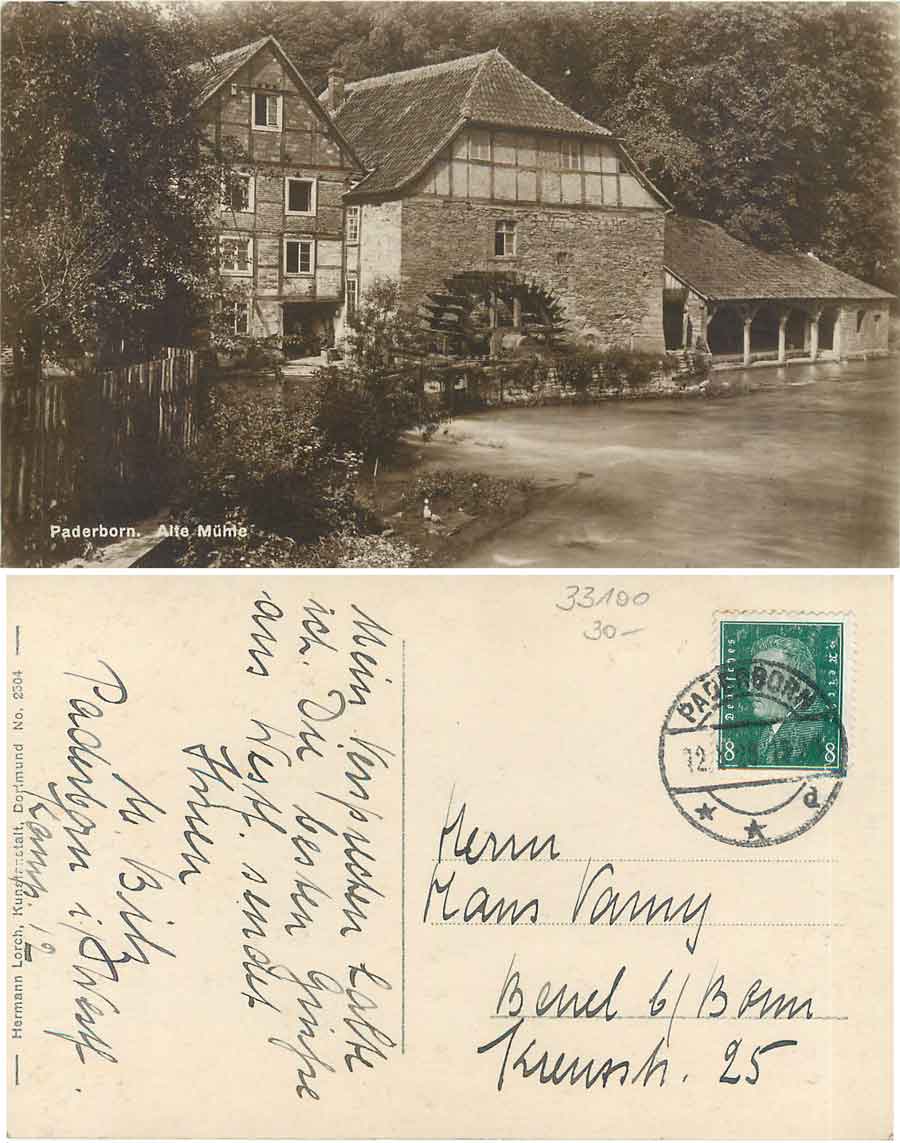 Paderborn. Alte Mühle
33100
30.–
Deutsches
Reich
8
8
PADERBORN
12.
d
Hermann Lorch, Kunstanstalt, Dortmund No. 2504
Mein Versprechen halte
ich. Die besten Grüsse
aus Westf. sendet
Ihnen
M. Bilz
Paderborn i/Westf.
Kamp 19
Herrn
Hans Vanny
Beuel b/ Bonn
Kreuzstr. 25